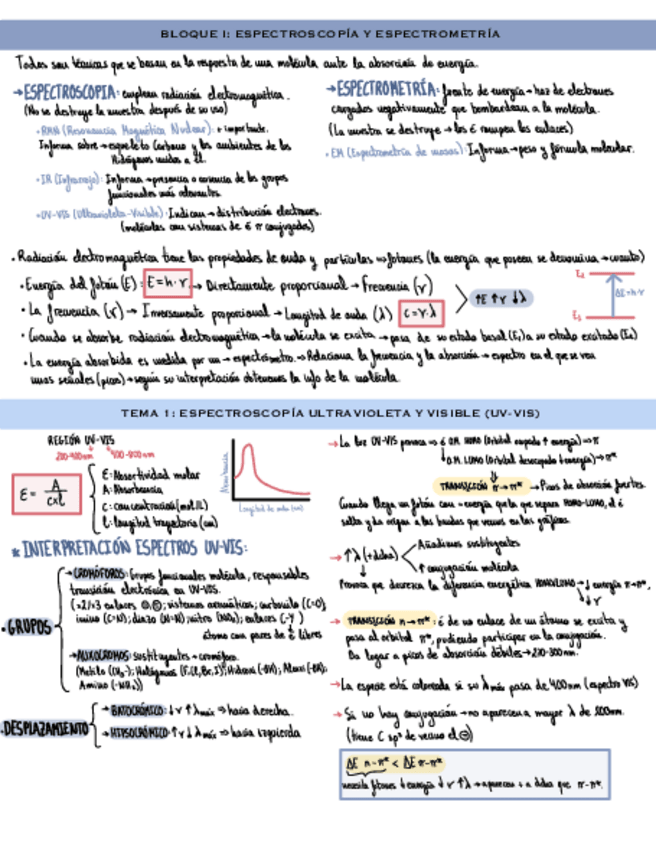 BLOQUE I: ESPECTROSCOPÍA Y ESPECTROMETRÍA
Todas son técnicas que se basan en la respuesta de una molécula ante la absorción de energía.
→ESPECTROSCOPIA: emplean radiación electromagnética.
(No se destruye la muestra después de su uso)
·RMN (Resonancia Magnética Nuclear): + importante.
Informa sobre→esqueleto Carbono y los ambientes de los
Hidrógenos unidos a él.
·IR (Infrarrojo): Informa→presencia o ausencia de los grupos
funcionales más relevantes.
·UV-VIS (Ultravioleta-Visible): Indican→distribución electrones.
(moléculas con sistemas de e⁻ π conjugados)
→ESPECTROMETRÍA: fuente de energía→haz de electrones
cargados negativamente que bombardean a la molécula.
(La muestra se destruye→los e⁻ rompen los enlaces)
·EM (Espectrometría de masas): Informa→peso y fórmula molecular.
·Radiación electromagnética tiene las propiedades de onda y partículas⇒fotones (la energía que poseen se denomina→cuanto)
·Energía del fotón (E): E=h·γ → Directamente proporcional→Frecuencia (γ)
·La frecuencia (γ)→ Inversamente proporcional→Longitud de onda (λ) C=γ·λ
↑E ↑γ ↓λ
E₂
ΔE=h·γ
E₁
·Cuando se absorbe radiación electromagnética→la molécula se excita→pasa de su estado basal (E₁) a su estado excitado (E₂)
·La energía absorbida es medida por un→espectrómetro.→Relaciona la frecuencia y la absorción→espectro en el que se ven
unas señales (picos)→según su interpretación obtenemos la info de la molécula.
TEMA 1: ESPECTROSCOPÍA ULTRAVIOLETA Y VISIBLE (UV-VIS)
REGIÓN UV-VIS
200-400nm 400-800nm
ε = A / c×l
ε: Absortividad molar
A: Absorbancia
c: concentración (mol/L)
l: longitud trayectoria (cm)
Absorbancia
Longitud de onda (nm)
*INTERPRETACIÓN ESPECTROS UV-VIS:
·GRUPOS
→CROMÓFOROS: Grupos funcionales molécula, responsables
transición electrónica en UV-VIS.
sistemas aromáticos; carbonilo (C=O)
imino (C=N); diazo (N=N); nitro (NO₂); enlaces (C-Y)
átomo con pares de e⁻ libres
→AUXOCROMOS: sustituyentes→cromóforo.
(Metilo (CH₃-); Halógenos (F, Cl, Br, I); Hidroxi (-OH); Alcoxi (-OR);
Amino (-NH₂))
·DESPLAZAMIENTO
→BATOCRÓMICO: ↓γ ↑λmáx ⇒ hacia derecha.
→HIPSOCRÓMICO: ↑γ ↓λmáx ⇒ hacia izquierda
→La luz UV-VIS provoca→ e⁻ O.M. HOMO (Orbital ocupado ↑ energía)→π
↓ O.M. LUMO (Orbital desocupado ↓ energía)→π*
TRANSICIÓN π→π* →Picos de absorción fuertes.
Cuando llega un fotón con = energía que la que separa HOMO-LUMO, el e⁻
salta y da origen a las bandas que vemos en las gráficas.
→↑λ (+dcha)
Añadimos sustituyentes
↑ conjugación molécula
Provoca que decrezca la diferencia energética HOMO/LUMO→↓ energía π→π*,
↓γ
→TRANSICIÓN n→π*: e⁻ de un enlace de un átomo se excita y
pasa al orbital π*, pudiendo participar en la conjugación.
Da lugar a picos de absorción débiles→270-300nm.
→La especie está coloreada si su λmáx pasa de 400nm (espectro VIS)
→Si no hay conjugación→no aparecen a mayor λ de 200nm.
(tiene C sp³ de vecino el ⊖)
ΔE n-π* < ΔE π-π*
necesita fotones ↓ energía ↓γ ↑λ→aparecen + a dcha que π-π*.